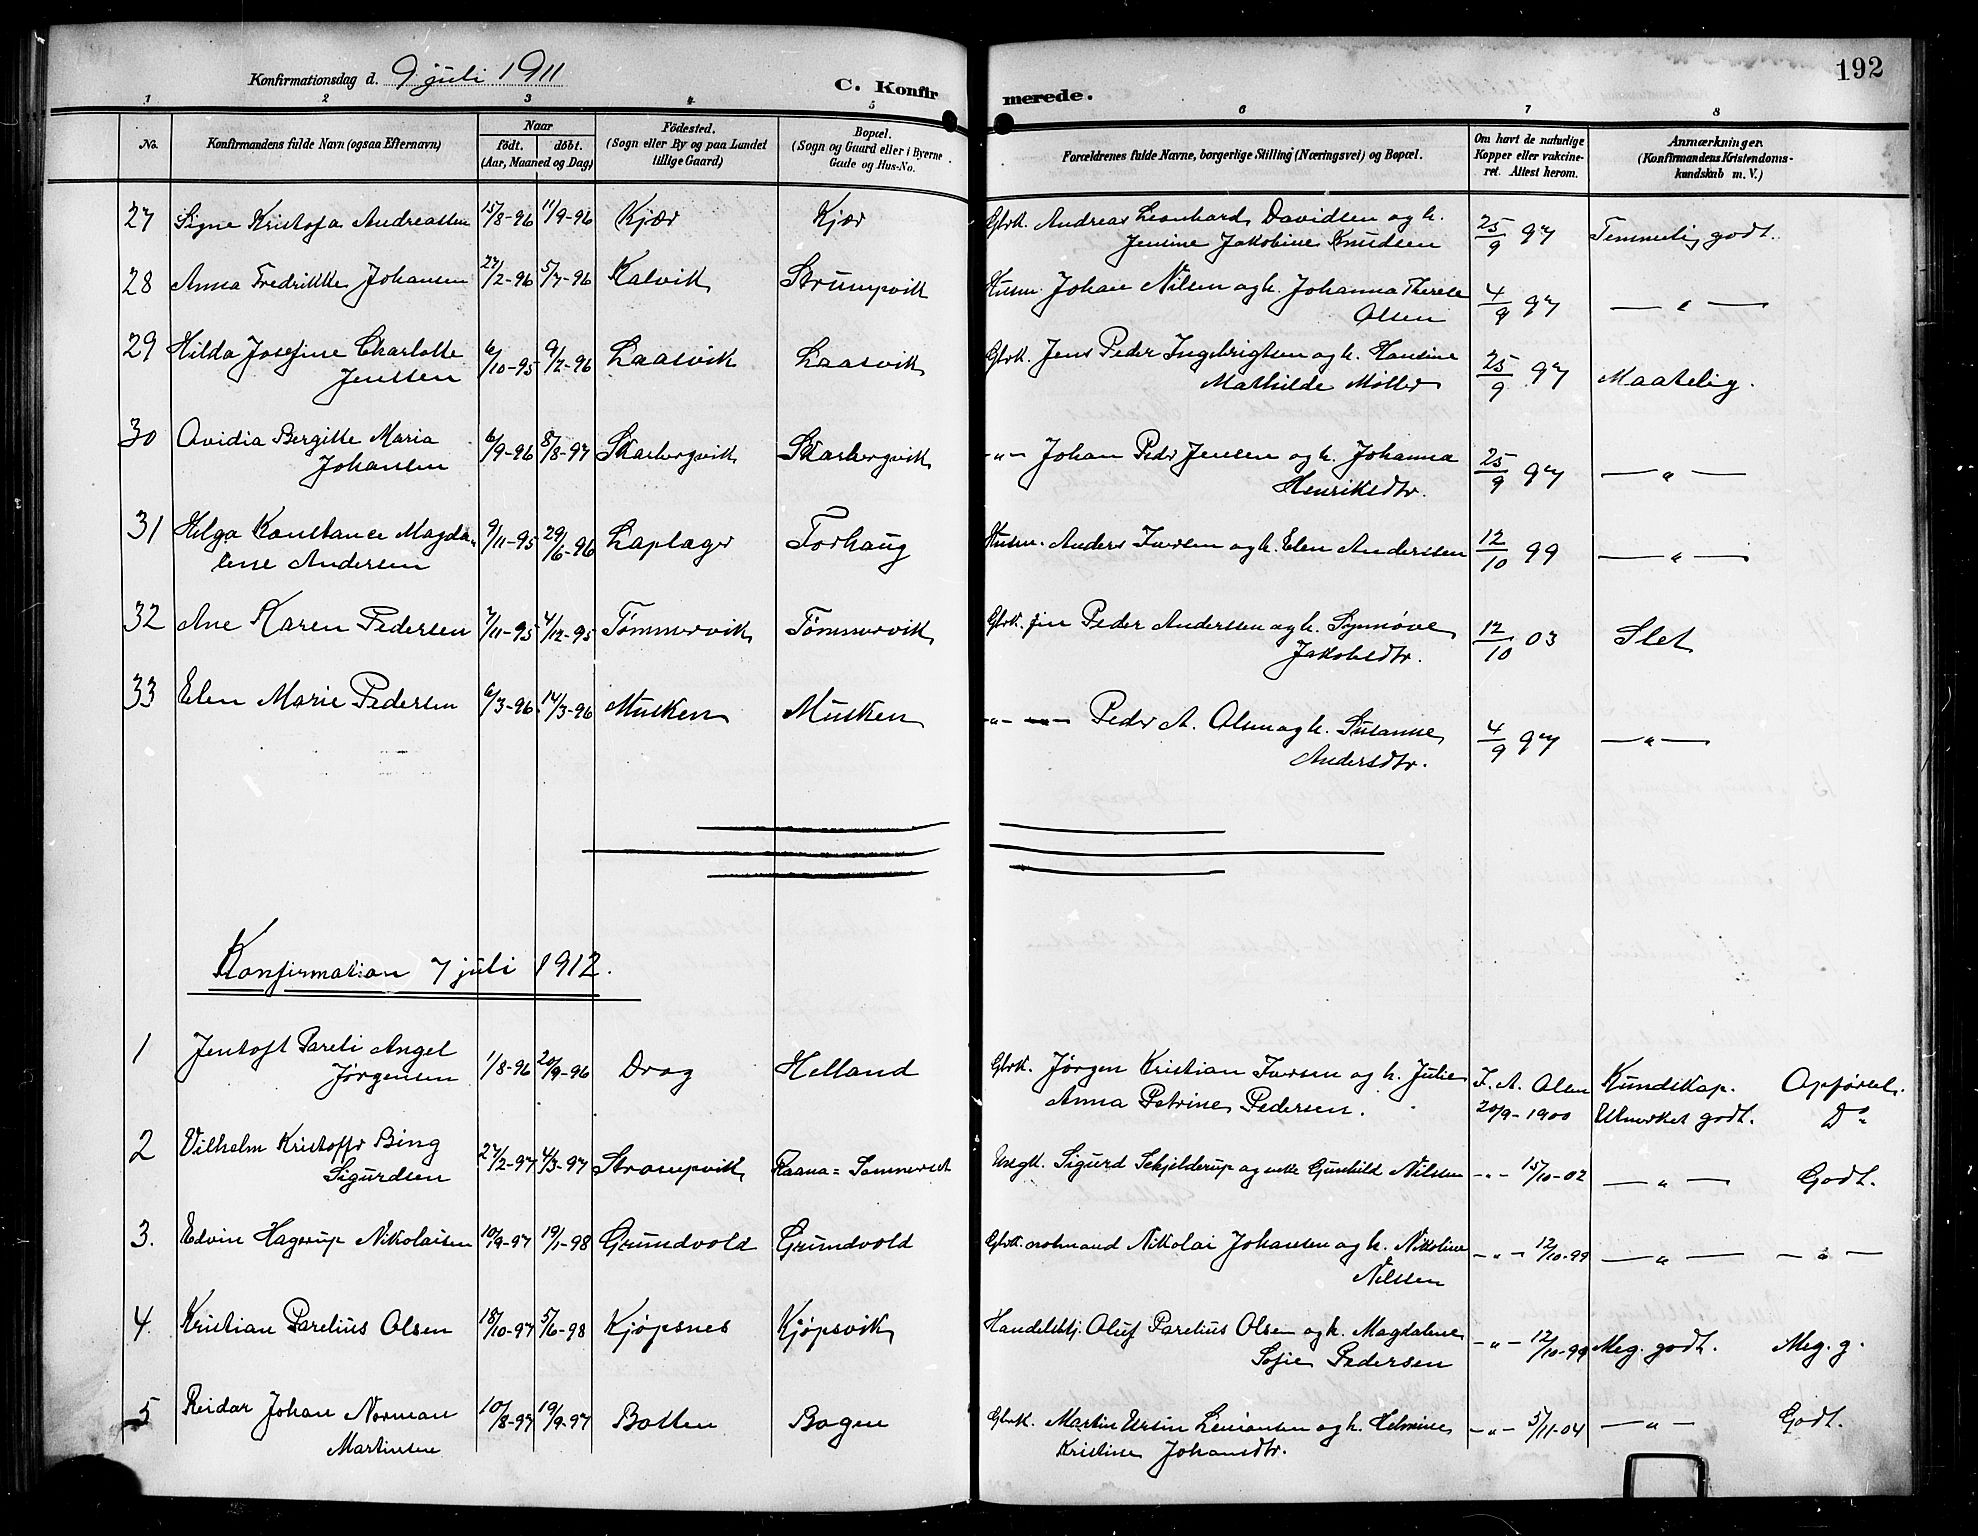 192
Konfirmationsdag d. 9 juli 1911
C. Konfirmerede.
1 2 3 4 5 6 7 8
No. Konfirmandens fulde Navn (ogsaa Efternavn) Naar födt. döbt. (Aar, Maaned og Dag) Födested. (Sogn eller By og paa Landet tillige Gaard) Bopæl. (Sogn og Gaard eller i Byerne Gade og Hus-No. Forældrenes fulde Navne, borgerlige Stilling (Næringsvei) og Bopæl. Om havt de naturlige Kopper eller vakcineret. Attest herom. Anmærkninger. (Konfirmandens Kristendomskundskab m. V.)
27 Signe Kristofa Andreassen 15/8-96 11/9-96 Kjær Kjær Gbrk. Andreas Leonhard Davidsen og h.
Jenine Jakobine Knudsen 25/9 97 Temmelig godt.
28 Anna Fredrikke Johansen 27/2-96 5/7-96 Kalvik Strumpvik Husm. Johan Nilsen og h. Johanna Therese
Olsen 4/9 97 — " —
29 Hilda Josefine Charlotte
Jenssen 6/10-95 9/2-96 Laasvik Laasvik Gbrk. Jens Peder Ingebrigtsen og h. Hansine
Mathilde Møller 25/9 97 Maatelig.
30 Ovidia Bergitte Maria
Johansen 6/9-96 8/8-97 Skarbergvik Skarbergvik -"- Johan Peder Jensen og h. Johanna
Henriksdtr. 25/9 97 — " —
31 Helga Konstance Magda-
lene Andersen 9/11-95 29/6-96 Laplager Forhaug Husm. Anders Iversen og h. Elen Anderssen 12/10 99 — " —
32 Ane Karen Pedersen 7/11-95 4/12-95 Tømmervik Tømmervik Gbrk. fin Peder Anderssen og h. Synnøve
Jakobsdtr. 12/10 03 Slet
33 Elen Marie Pedersen 6/3-96 14/3-96 Musken Musken -"- — Peder A. Olsen og h. Susanne
Andersdtr. 4/9 97 — " —
Konfirmation 7 juli 1912.
1 Jentoft Pareli Angel
Jørgensen 1/8-96 20/9-96 Drag Helland Gbrk. Jørgen Kristian Iversen og h. Julie
Anna Petrine Pedersen. F. A. Olsen
20/9-1900 Kundskap. Opførsel.
Utmerket godt. Do
2 Vilhelm Kristoffer Bing
Sigurdsen 27/2-97 4/3-97 Strompvik Raana=Sommerset Ugk. Sigurd Schjelderup og Gunhild Nilssen -"- 15/10-02 — " — Godt.
3. Edvin Hagerup Nikolaisen 10/9-97 19/1-98 Grundvold Grundvold Gbrk. nordmand Nikolai Johansen og h. Nikoline
Nilssen -"- 12/10-99 — " — - " -
4. Kristian Parelius Olsen 18/10-97 5/6-98 Kjøpsnes Kjøpsvik Handelsbtj. Oluf Parelius Olsen og h. Magdalene
Sofie Pedersen -"- 12/10-99 Meg. godt. Meg. g.
5 Reidar Johan Norman
Martinsen 10/8-97 19/9-97 Botten Bogen Gbrk. Martin Ursin Lenionsen og h. Helmine
Kristine Johansdtr. -"- 5/11-04 — " — Godt.